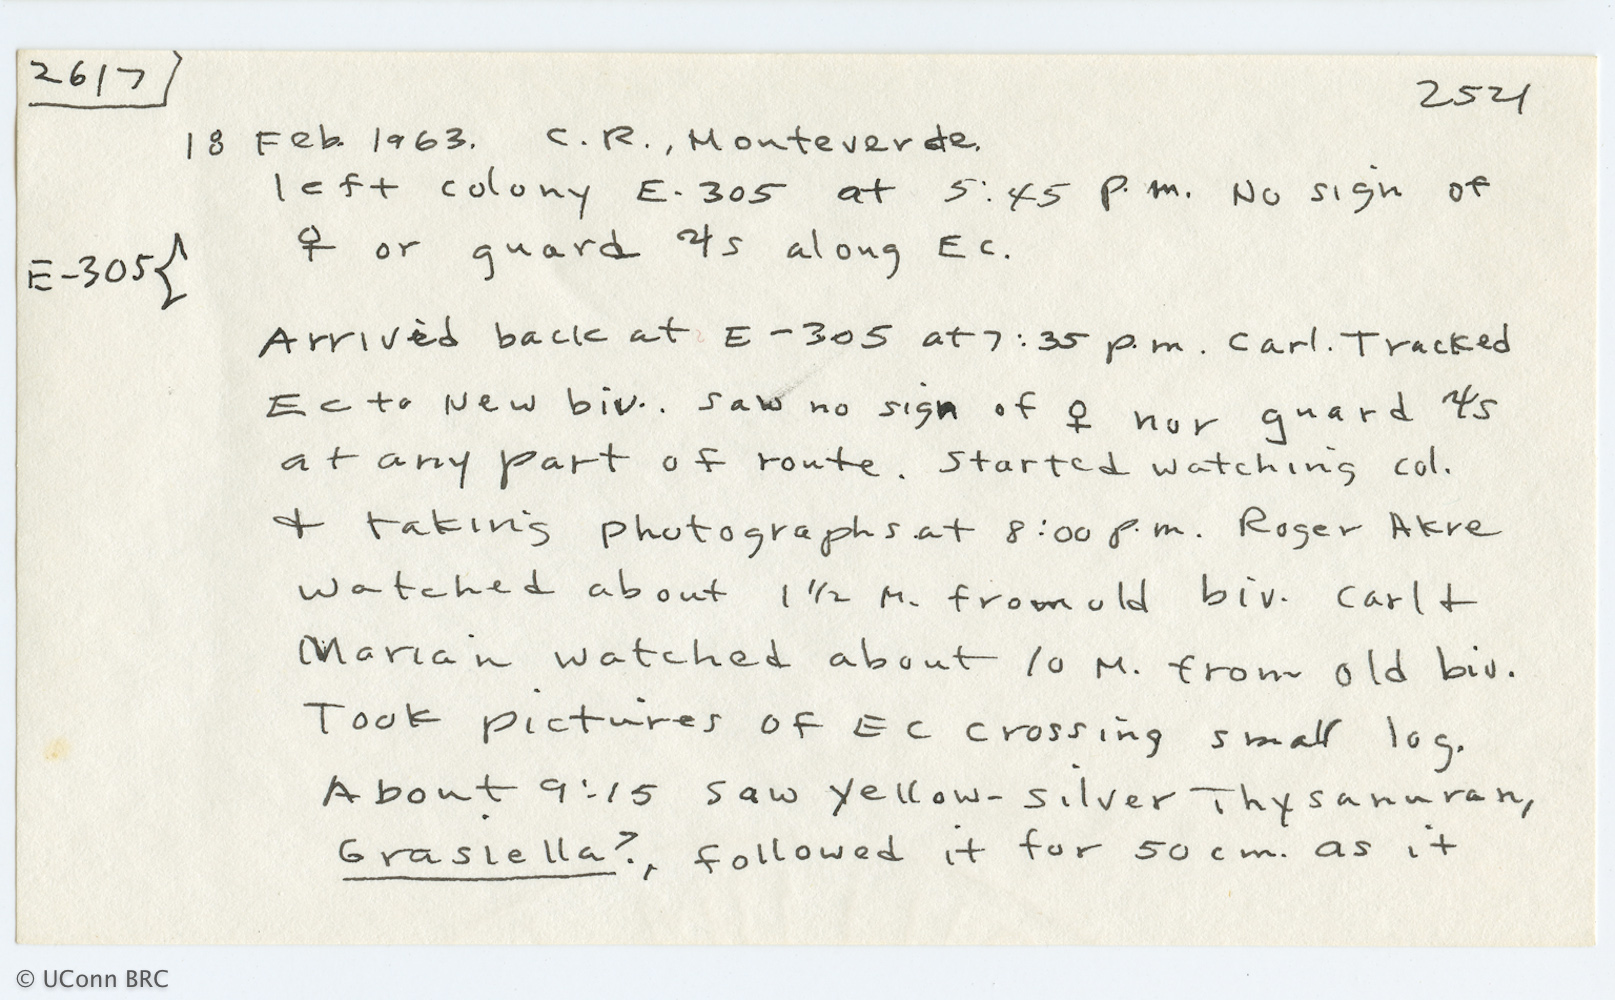 2617
2521
18 Feb. 1963. C.R., Monteverde.
left colony E-305 at 5:45 p.m. No sign of
♀ or guard ☿s along EC.
E-305{
Arrived back at E-305 at 7:35 p.m. Carl. Tracked
EC to New biv.. saw no sign of ♀ nor guard ☿s
at any part of route. Started watching col.
& taking photographs at 8:00 p.m. Roger Akre
watched about 1 1/2 M. from old biv. Carl &
Marian watched about 10 M. from old biv.
Took pictures of EC crossing small log.
About 9:15 saw yellow-silver Thysanuran,
Grasiella?, followed it for 50 cm. as it
© UConn BRC